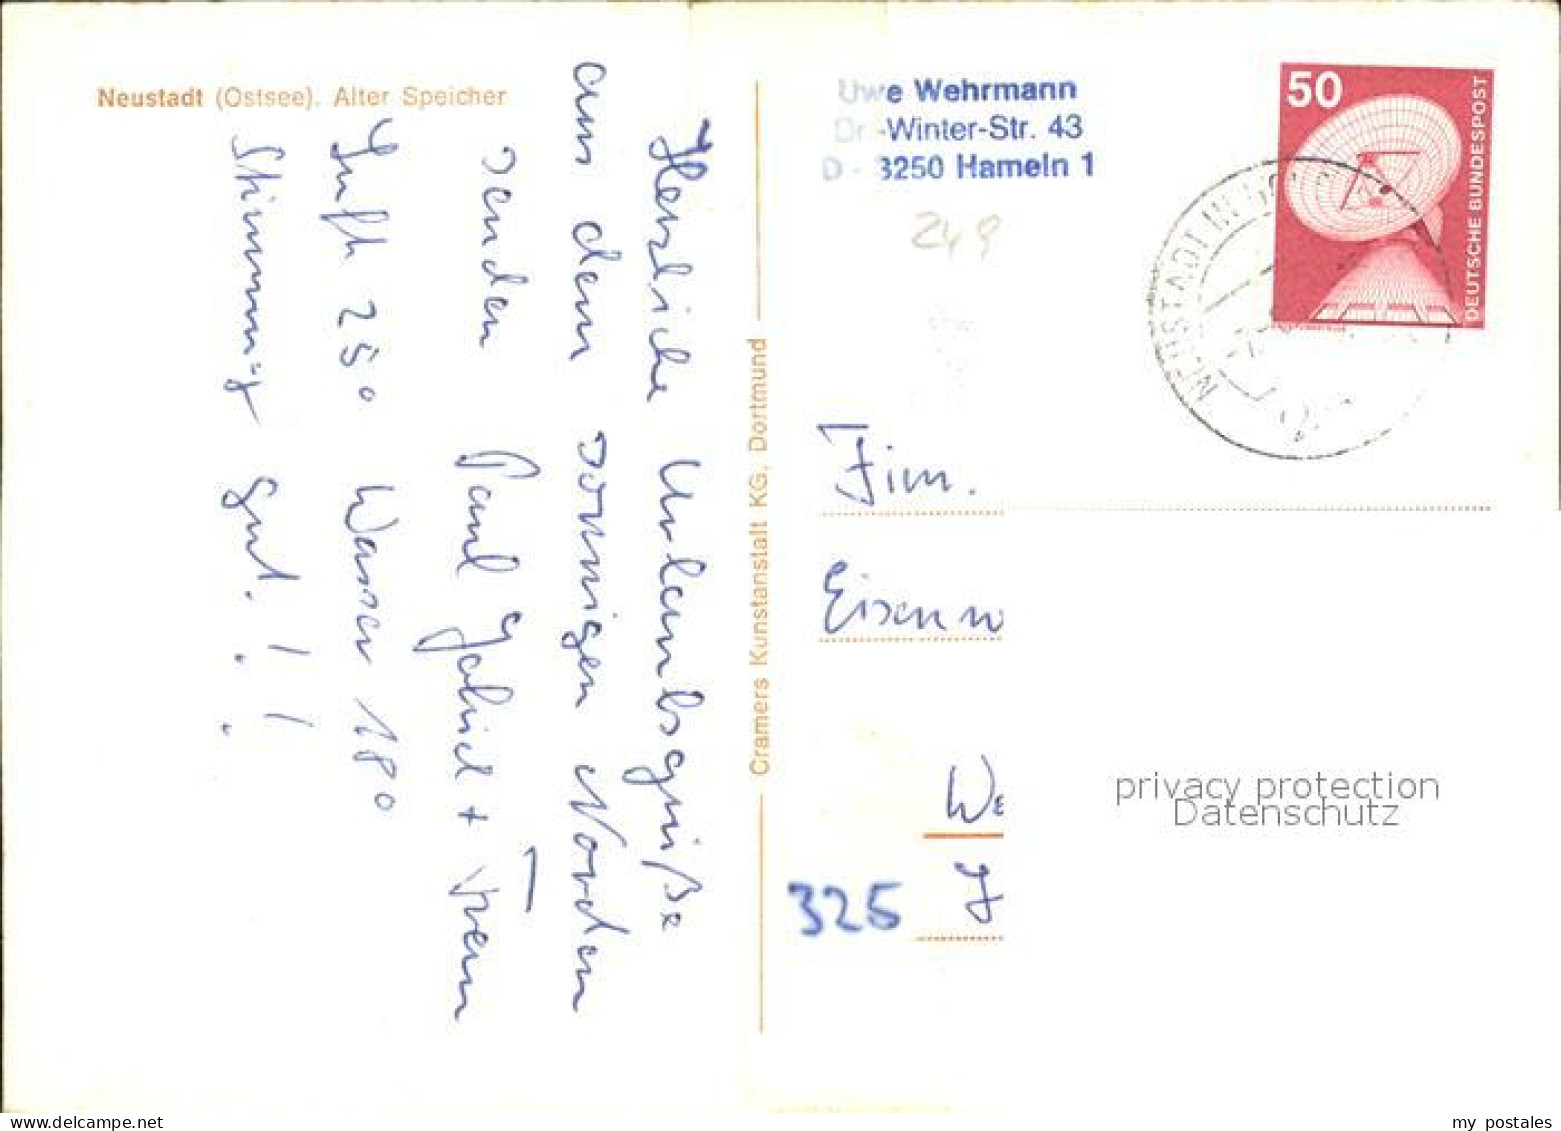 Neustadt (Ostsee). Alter Speicher
Herzliche Urlaubsgrüße
aus dem sonnigen Norden
senden Paul + Frau
Luft 25° Wasser 18°
Stimmung gut!!
Cramers Kunstanstalt KG, Dortmund
Uwe Wehrmann
Dr.-Winter-Str. 43
D - 3250 Hameln 1
249
50
DEUTSCHE BUNDESPOST
NEUSTADT IN HOLST
Firm.
Eisenw
We
325
privacy protection
Datenschutz
my postales